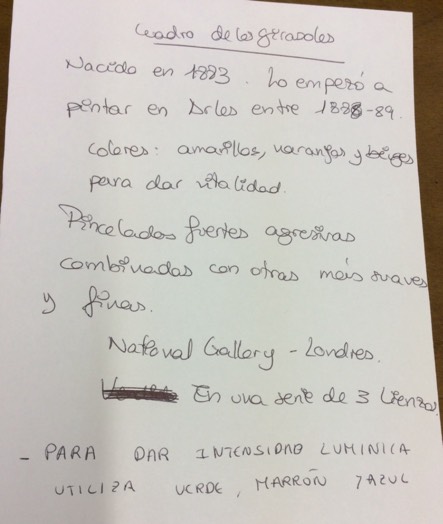 Cuadro de los girasoles
Nacido en 1883. Lo empezó a
pintar en Arles entre 1888-89.
colores: amarillos, naranjas y beiges
para dar vitalidad.
Pinceladas fuertes agresivas
combinadas con otras más suaves
y finas.
National Gallery - Londres.
En una serie de 3 lienzos
- PARA DAR INTENSIDAD LUMINICA
UTILIZA VERDE, MARRÓN Y AZUL